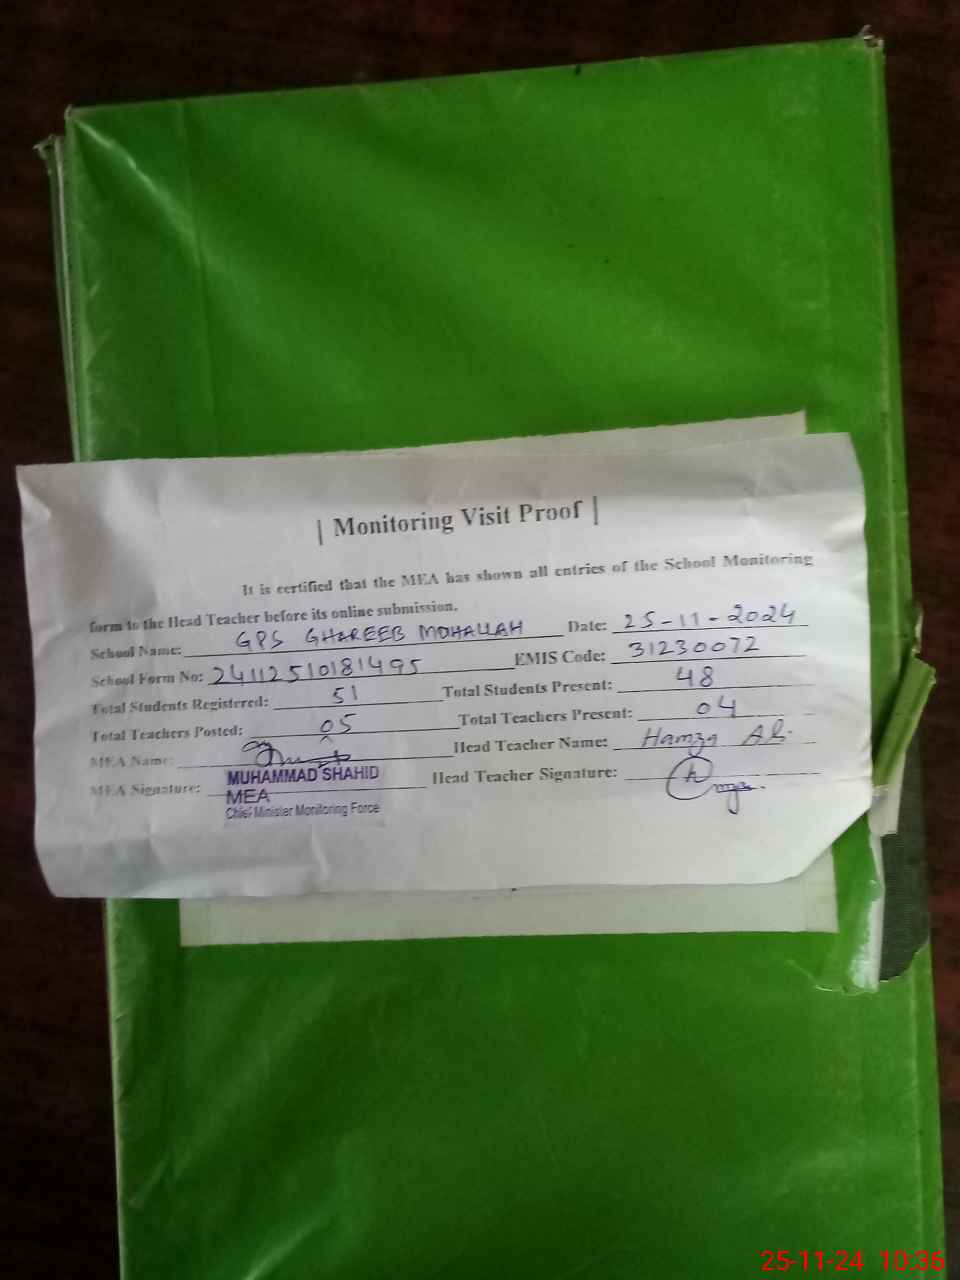 | Monitoring Visit Proof |
It is certified that the MEA has shown all entries of the School Monitoring
form to the Head Teacher before its online submission.
School Name: GPS GHAREEB MOHALLAH Date: 25-11-2024
School Form No: 24112510181495 EMIS Code: 31230072
Total Students Registered: 51 Total Students Present: 48
Total Teachers Posted: 05 Total Teachers Present: 04
MEA Name: Head Teacher Name: Hamza Ali
MEA Signature: Head Teacher Signature:
MUHAMMAD SHAHID
MEA
Chief Minister Monitoring Force
25-11-24 10:36